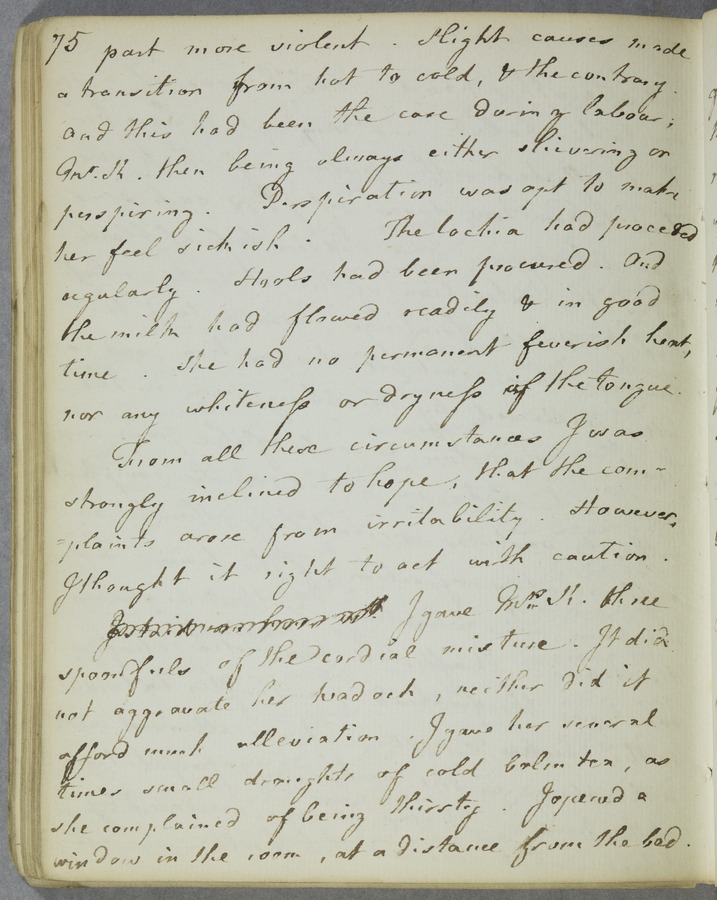 75 part more violent. Slight causes made
a transition from hot to cold, & the contrary.
And this had been the case during labour;
Mrs. K. then being always either shivering or
perspiring. Perspiration was apt to make
her feel sickish. The lochia had proceeded
regularly. Stools had been procured. And
the milk had flowed readily & in good
time. She had no permanent feverish heat,
nor any whiteness or dryness of the tongue.
From all these circumstances I was
strongly inclined to hope, that the com-
-plaints arose from irritability. However,
I thought it right to act with caution.
I gave Mrs. K. three
spoonfuls of the cordial mixture. It did
not aggravate her headach, neither did it
afford much alleviation. I gave her several
times small draughts of cold balm tea, as
she complained of being thirsty. I opened a
window in the room, at a distance from the bed.